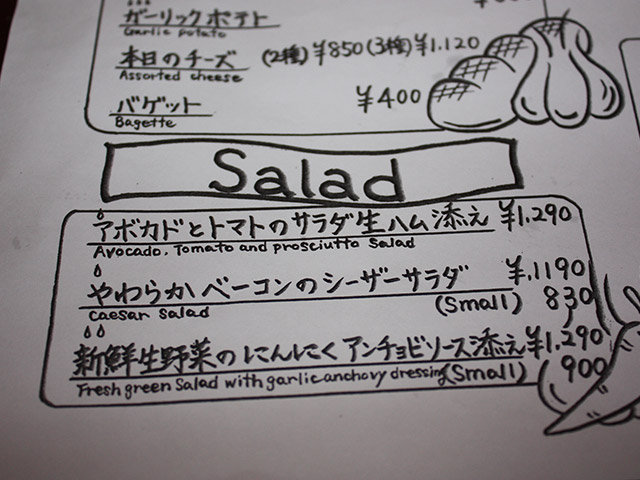 ガーリックポテト
Garlic potato
本日のチーズ (2種)¥850(3種)¥1.120
Assorted cheese
バゲット ¥400
Bagette
Salad
アボカドとトマトのサラダ生ハム添え ¥1.290
Avocado. Tomato and prosciutto Salad
やわらかベーコンのシーザーサラダ ¥.1190
Caesar Salad (Small) 830
新鮮生野菜のにんにくアンチョビソース添え ¥1.290
Fresh green Salad with garlic anchovy dressing (Small) 900